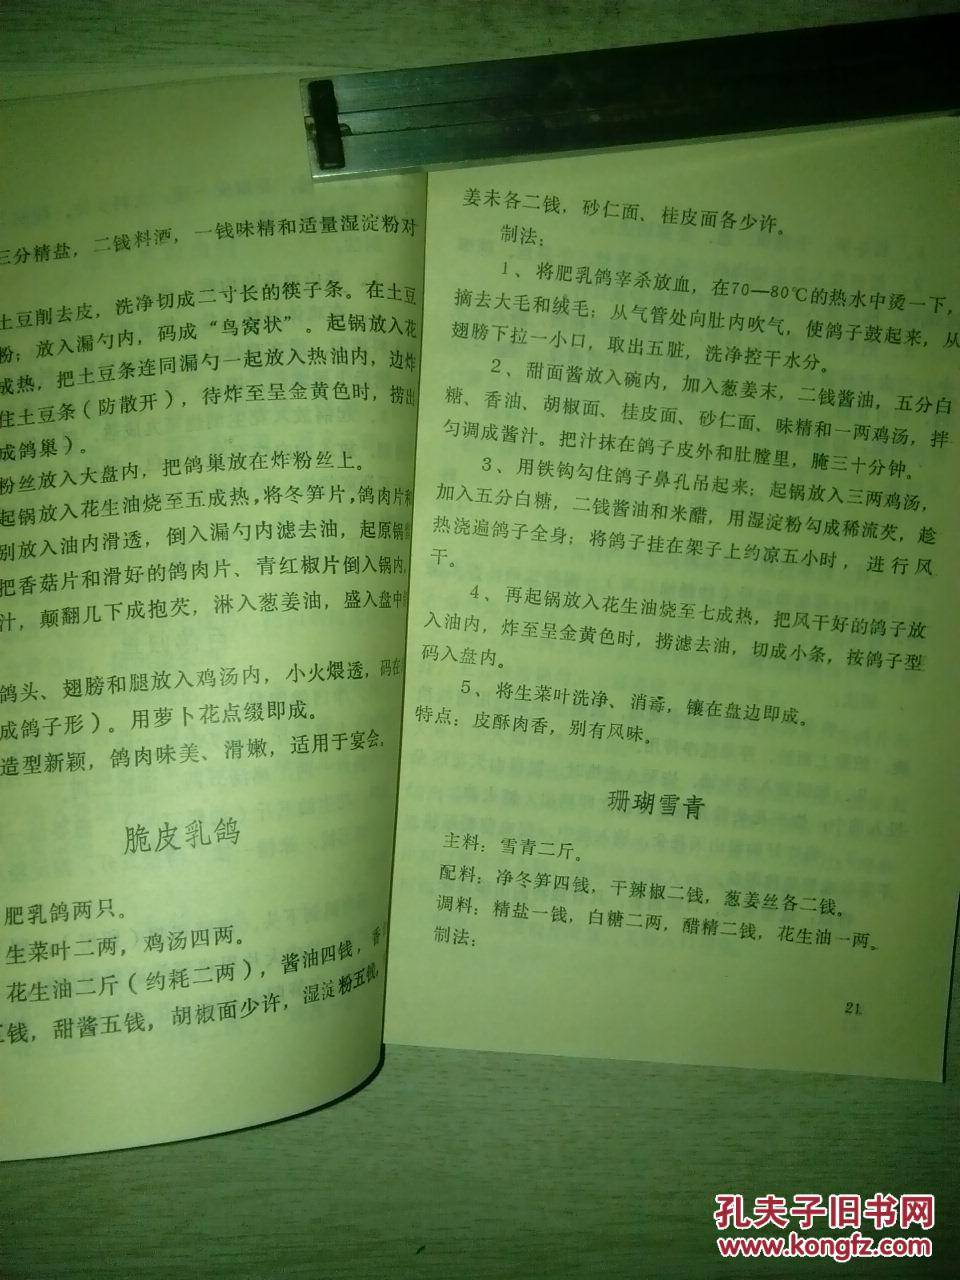 三分精盐，二钱料酒，一钱味精和适量湿淀粉对
土豆削去皮，洗净切成二寸长的筷子条。在土豆
粉；放入漏勺内，码成“鸟窝状”。起锅放入花
成热，把土豆条连同漏勺一起放入热油内，边炸
住土豆条（防散开），待炸至呈金黄色时，捞出
成鸽巢）。
粉丝放入大盘内，把鸽巢放在炸粉丝上。
起锅放入花生油烧至五成热，将冬笋片，鸽肉片和
别放入油内滑透，倒入漏勺内滤去油，起原锅
把香菇片和滑好的鸽肉片、青红椒片倒入锅内，
汁，颠翻几下成抱芡，淋入葱姜油，盛入盘中
鸽头、翅膀和腿放入鸡汤内，小火煨透，码在
成鸽子形）。用萝卜花点缀即成。
造型新颖，鸽肉味美、滑嫩，适用于宴会。
脆皮乳鸽
肥乳鸽两只。
生菜叶二两，鸡汤四两。
花生油二斤（约耗二两），酱油四钱，香
钱，甜酱五钱，胡椒面少许，湿淀粉五钱，
姜未各二钱，砂仁面、桂皮面各少许。
制法：
1、将肥乳鸽宰杀放血，在70—80℃的热水中烫一下，
摘去大毛和绒毛；从气管处向肚内吹气，使鸽子鼓起来，从
翅膀下拉一小口，取出五脏，洗净控干水分。
2、甜面酱放入碗内，加入葱姜末，二钱酱油，五分白
糖、香油、胡椒面、桂皮面、砂仁面、味精和一两鸡汤，拌
匀调成酱汁。把汁抹在鸽子皮外和肚膛里，腌三十分钟。
3、用铁钩勾住鸽子鼻孔吊起来；起锅放入三两鸡汤，
加入五分白糖，二钱酱油和米醋，用湿淀粉勾成稀流芡，趁
热浇遍鸽子全身；将鸽子挂在架子上约凉五小时，进行风
干。
4、再起锅放入花生油烧至七成热，把风干好的鸽子放
入油内，炸至呈金黄色时，捞滤去油，切成小条，按鸽子型
码入盘内。
5、将生菜叶洗净、消毒，镶在盘边即成。
特点：皮酥肉香，别有风味。
珊瑚雪青
主料：雪青二斤。
配料：净冬笋四钱，干辣椒二钱，葱姜丝各二钱。
调料：精盐一钱，白糖二两，醋精二钱，花生油一两。
制法：
21
孔夫子旧书网
www.kongfz.com